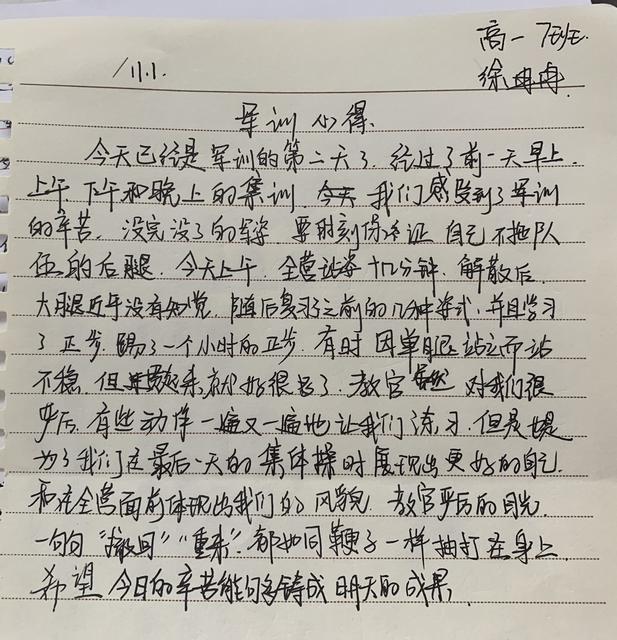 高一 7班
11.1.
徐冉冉
军训心得.
今天已经是军训的第二天了.经过了前一天早上.
上午 下午和晚上的集训.今天我们感受到了军训
的辛苦.没完没了的军姿 要时刻保证自己不拖队
伍的后腿.今天上午.全营站姿十几分钟.解散后.
大腿近乎没有知觉.随后复习了之前的几种步式.并且学习
了正步.踢了一个小时的正步.有时因单腿站立而站
不稳.但 起来就好很多了.教官虽然对我们很
严厉.有些动作一遍又一遍地让我们练习.但是是
为了我们在最后一天的集体操时展现出更好的自己.
和在全营面前体现出我们的风貌.教官严厉的目光.
一句句“撤回”“重来”.都如同鞭子一样抽打在身上.
希望今日的辛苦能够铸成明天的成果.